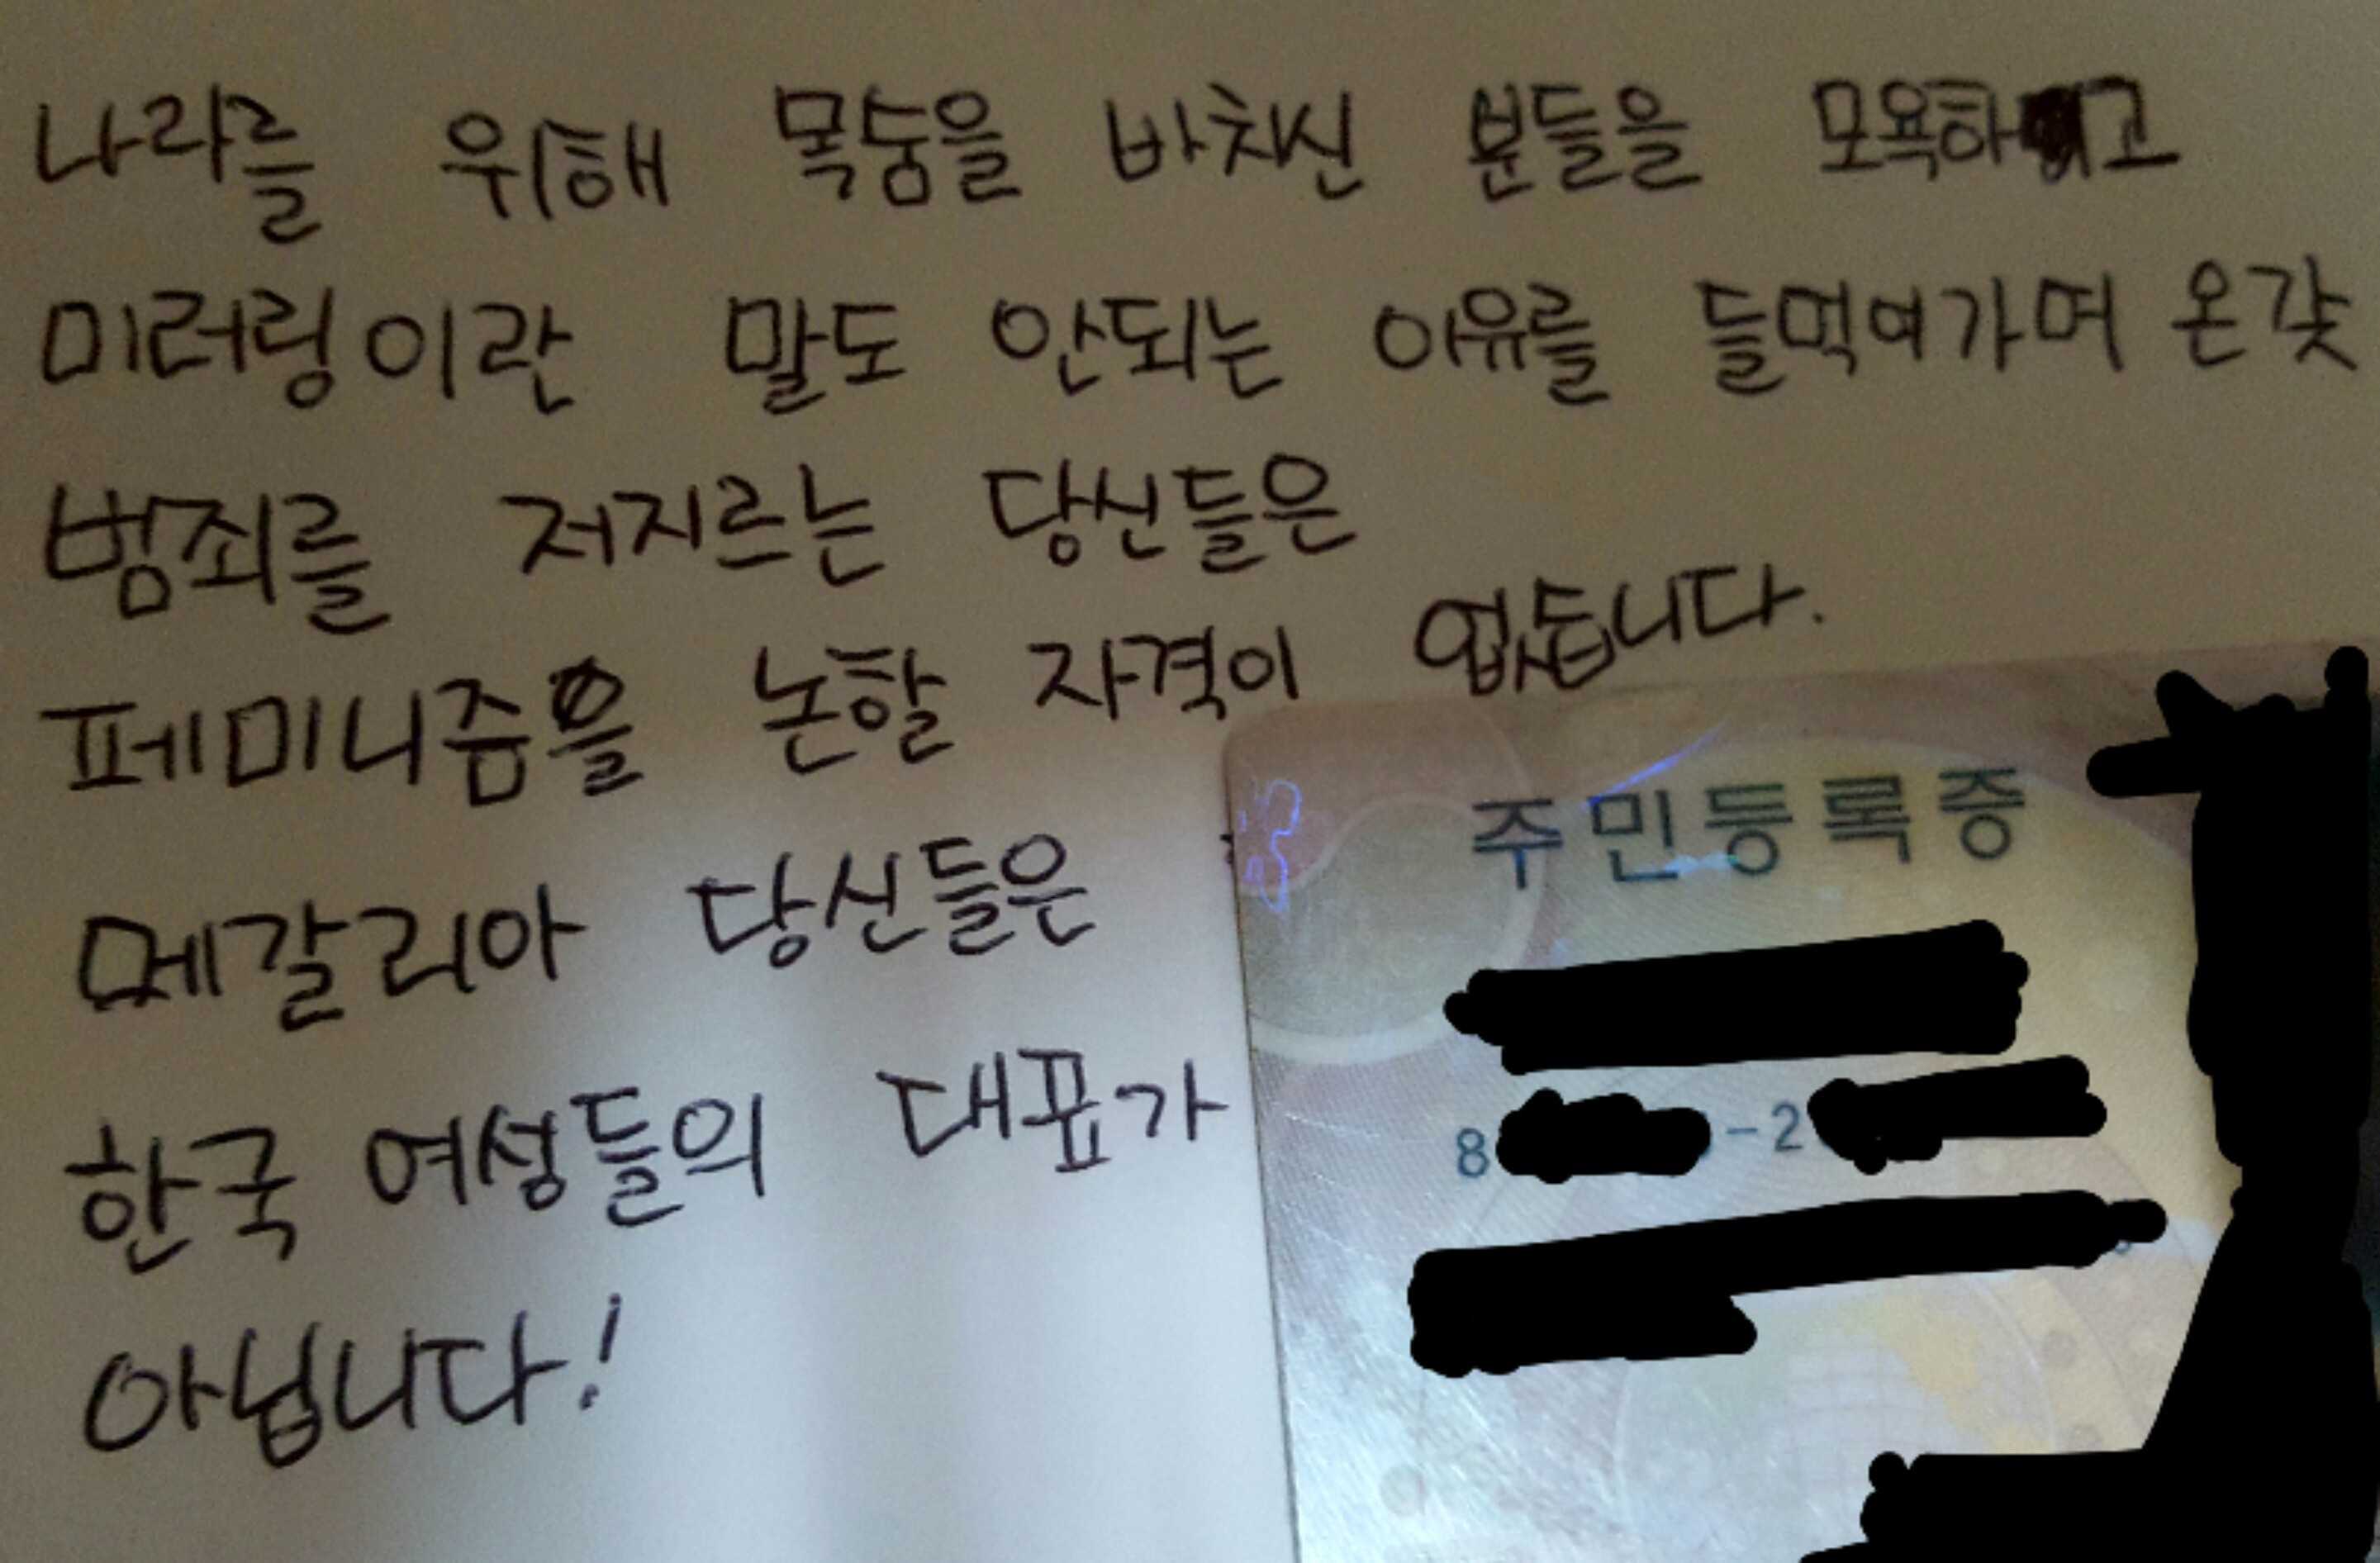 나라를 위해 목숨을 바치신 분들을 모욕하고
미러링이란 말도 안되는 이유를 들먹여가며 온갖
범죄를 저지르는 당신들은
페미니즘을 논할 자격이 없습니다.
메갈리아 당신들은
한국 여성들의 대표가
아닙니다!
주민등록증
8 -2